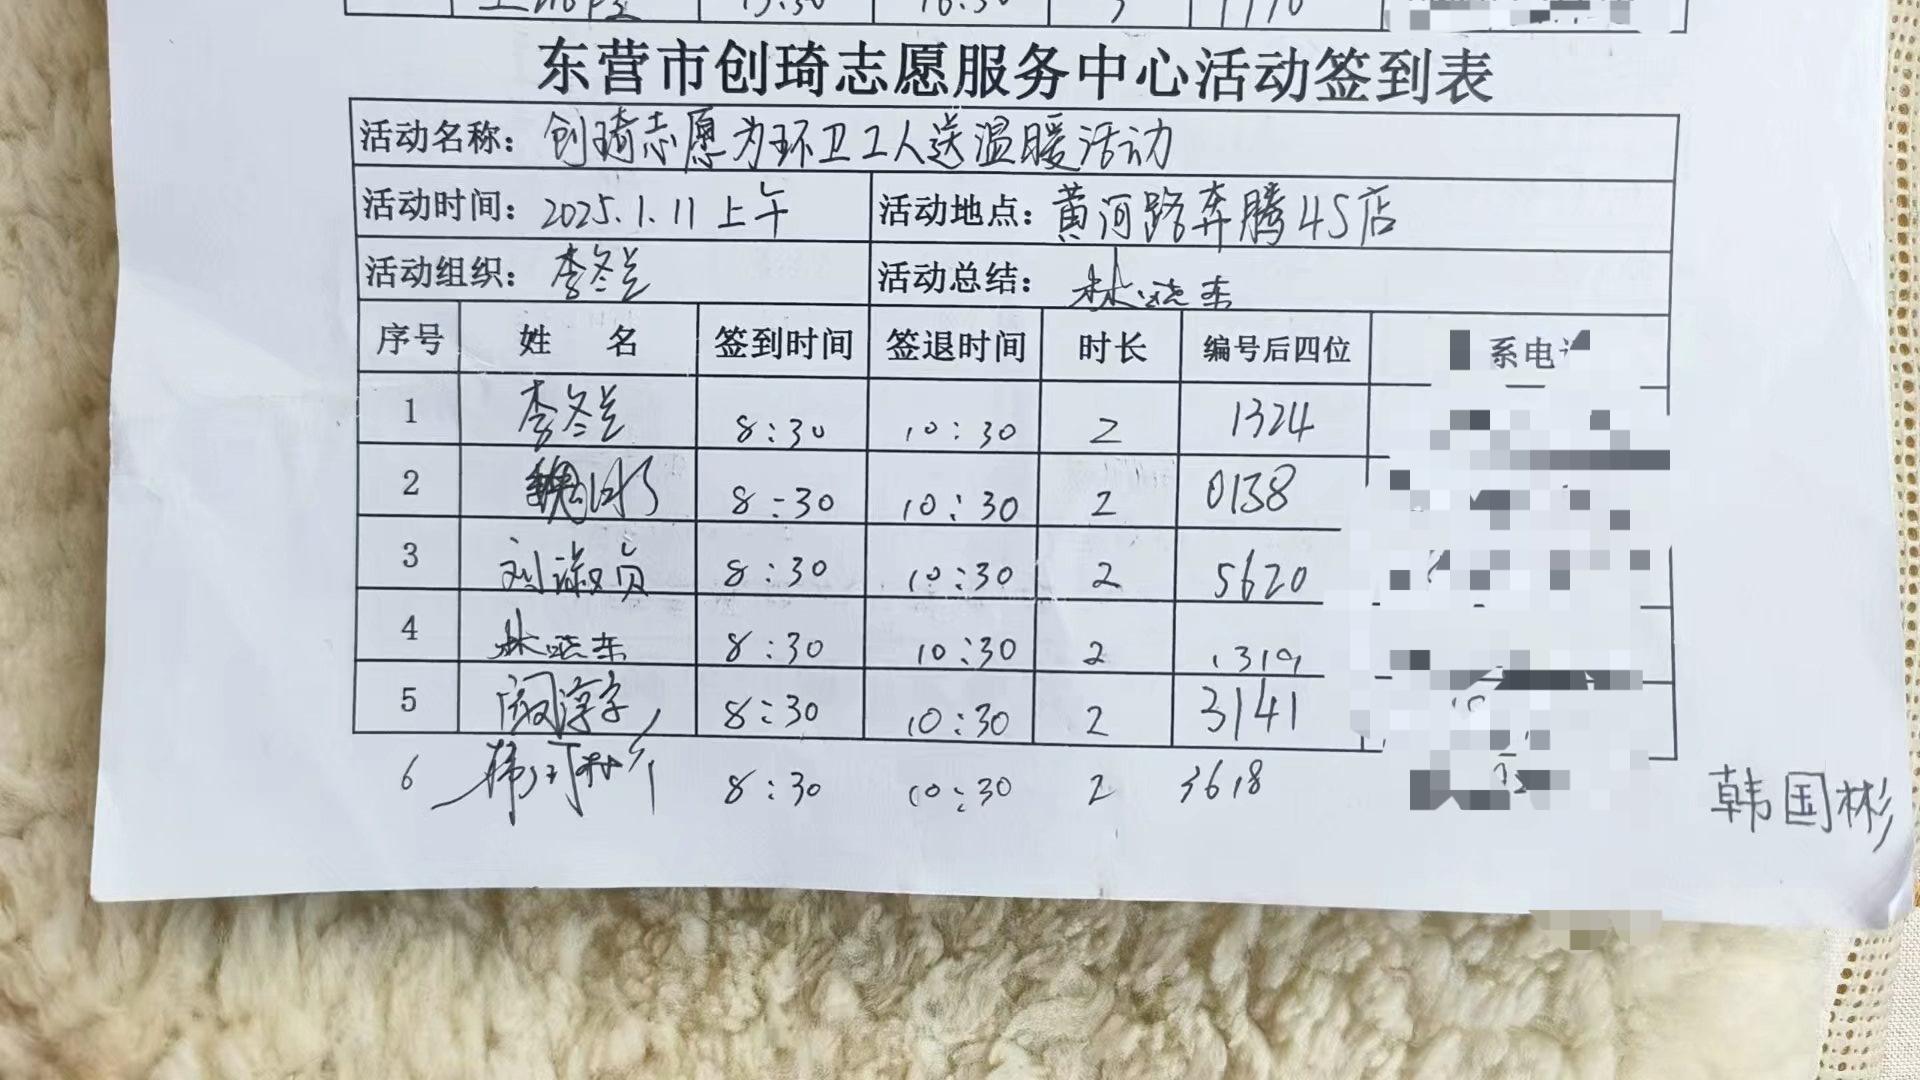 东营市创琦志愿服务中心活动签到表
活动名称： 创琦志愿为环卫工人送温暖活动
活动时间： 2025.1.11 上午 活动地点： 黄河路奔腾4S店
活动组织： 李冬兰 活动总结： 林晓东
序号 姓 名 签到时间 签退时间 时长 编号后四位 系电
1 李冬兰 8:30 10:30 2 1324
2 8:30 10:30 2 0138
3 刘淑贞 8:30 10:30 2 5620
4 林晓东 8:30 10:30 2
5 8:30 10:30 2 3141
6 韩国彬 8:30 10:30 2 3618
韩国彬